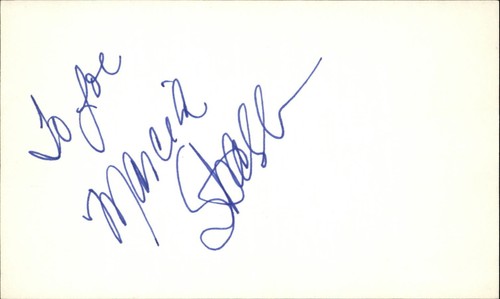 To Joe
Marcia
Strassman